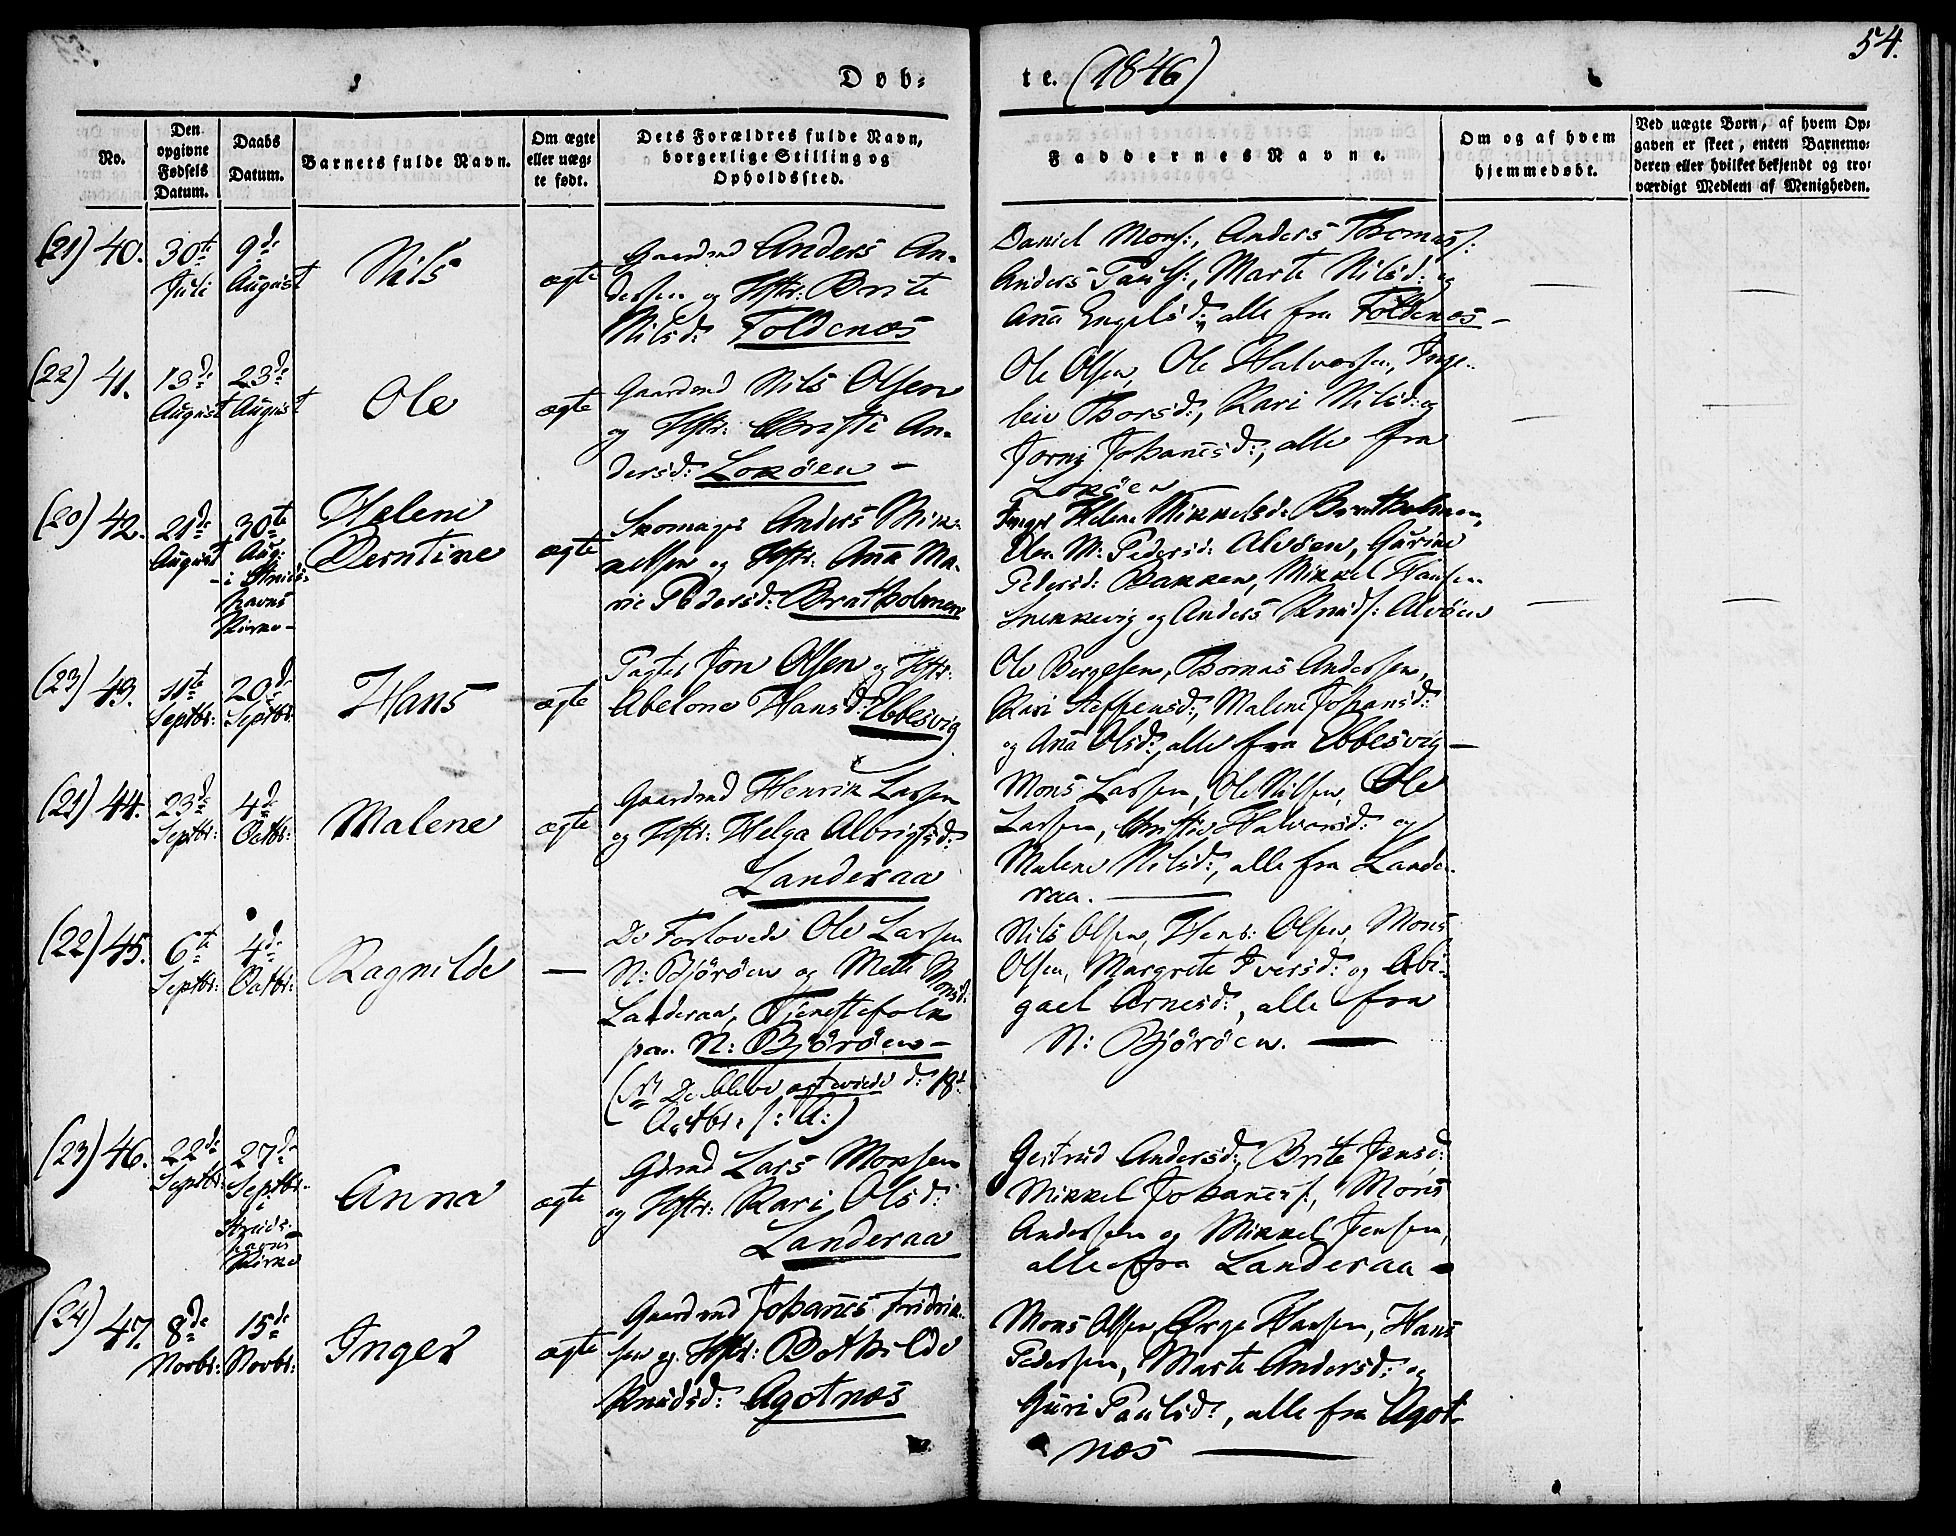 54.
Døb-
te. (1846)
No.
Den
opgivne
Fødsels
Datum.
Daabs
Datum.
Barnets fulde Navn.
Om ægte
eller uæg-
te født.
Dets Forældres fulde Navn,
borgerlige Stilling og
Opholdssted.
Faddernes Navne.
Om og af hvem
hjemmedøbt.
Ved uægte Børn, af hvem Op-
gaven er skeet, enten Barnemo-
deren eller hvilket bekjendt og tro-
værdigt Medlem af Menigheden.
(21) 40.
30te
Juli
9de
August
Nils
ægte
Gaardmd Anders An-
dersen og Hstr: Brite
Nilsd: Foldenæs
Daniel Mons:, Anders Thomas:
Anders Pauls:, Marte Nilsd: og
Ana Engelsd:, alle fra Foldenæs -
(22) 41.
13de
August
23de
August
Ole
ægte
Gaardmd Nils Olsen
og Hstr: Christi An-
dersd: Løkøen -
Ole Olsen, Ole Halvorsen, Inge-
Thorsd:, Kari Nilsd: og
Johanesd:, alle fra
Løkøen
(20) 42.
21de
August
30te
Aug:
i Struds-
havns
Kirke -
Helene
Berntine
ægte
Skomager Anders Mik-
kelsen og Hstr: Ana Ma-
rie Pedersd: Bratholmen
Helene Mikkelsd: Bratholmen,
M: Pedersd: Alvøen, Gurine
Pedersd: Bakken, Mikkel Hansen
Snekkevig og Anders Knuds: Alvøen
(23) 43.
11te
Septbr:
20de
Septbr:
Hans
ægte
Jon Olsen og Hstr:
Abelone Hansd: Ebbesvig
Ole Børgesen, Thomas Andersen,
Kari Steffensd:, Malene Johansd:
og Ana Olsd:, alle fra Ebbesvig -
(21) 44.
23de
Septbr:
4de
Octbr:
Malene
ægte
Gaardmd Henrik Larsen
og Hstr: Helga Albrigtsd:
Landeraa
Mons Larsen, Ole Nilsen, Ole
Larsen, Christi Halvorsd: og
Malene Nilsd:, alle fra Lande-
raa.
(22) 45.
6te
Septbr:
4de
Octbr:
Ragnilde
De Forlovede Ole Larsen
N: Bjørøen og Mette Monsd:
Landeraa, Tjenestefolk
paa N: Bjørøen -
(NB De bleve ægteviede d: 18de
Octbr: /: A:)
Nils Olsen, Olsen, Mons
Olsen, Margrete Iversd: og Abi-
gael Arnesd:, alle fra
N: Bjørøen.
(23) 46.
22de
Septbr:
27de
Septbr:
i
Struds-
havns
Kirke
Anna
ægte
Gdmd Lars Monsen
og Hstr: Kari Olsd:
Landeraa
Gertrud Andersd:, Brite Jensd:
Mikkel Johanes:, Mons
Andersen og Mikkel Jensen,
alle fra Landeraa -
(24) 47.
8de
Novbr:
15de
Novbr:
Inger
ægte
Gaardmd Johanes Fridrik-
sen og Hstr: Bothilde
Knudsd: Agotnæs
Mons Olsen, Hansen, Hans
Pedersen, Marte Andersd: og
Guri Paulsd:, alle fra Agot-
næs